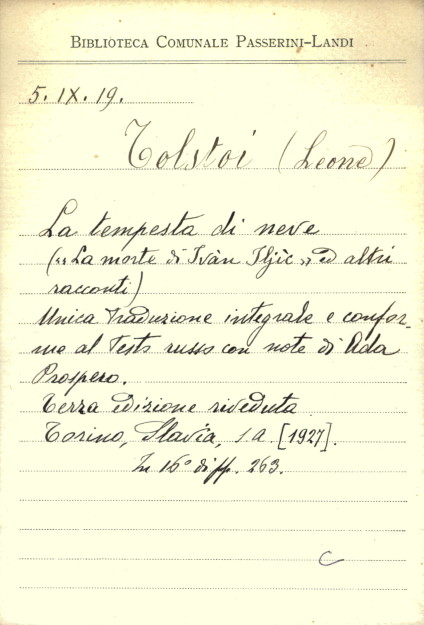 BIBLIOTECA COMUNALE PASSERINI-LANDI
5. IX. 19.
Tolstoi (Leone)
La tempesta di neve
(«La morte di Ivàn Iljíc» ed altri
racconti)
Unica traduzione integrale e confor-
me al testo russo con note di Ada
Prospero.
Terza edizione riveduta
Torino, Slavia, s.a. [1927].
In 16° di pp. 263.
C